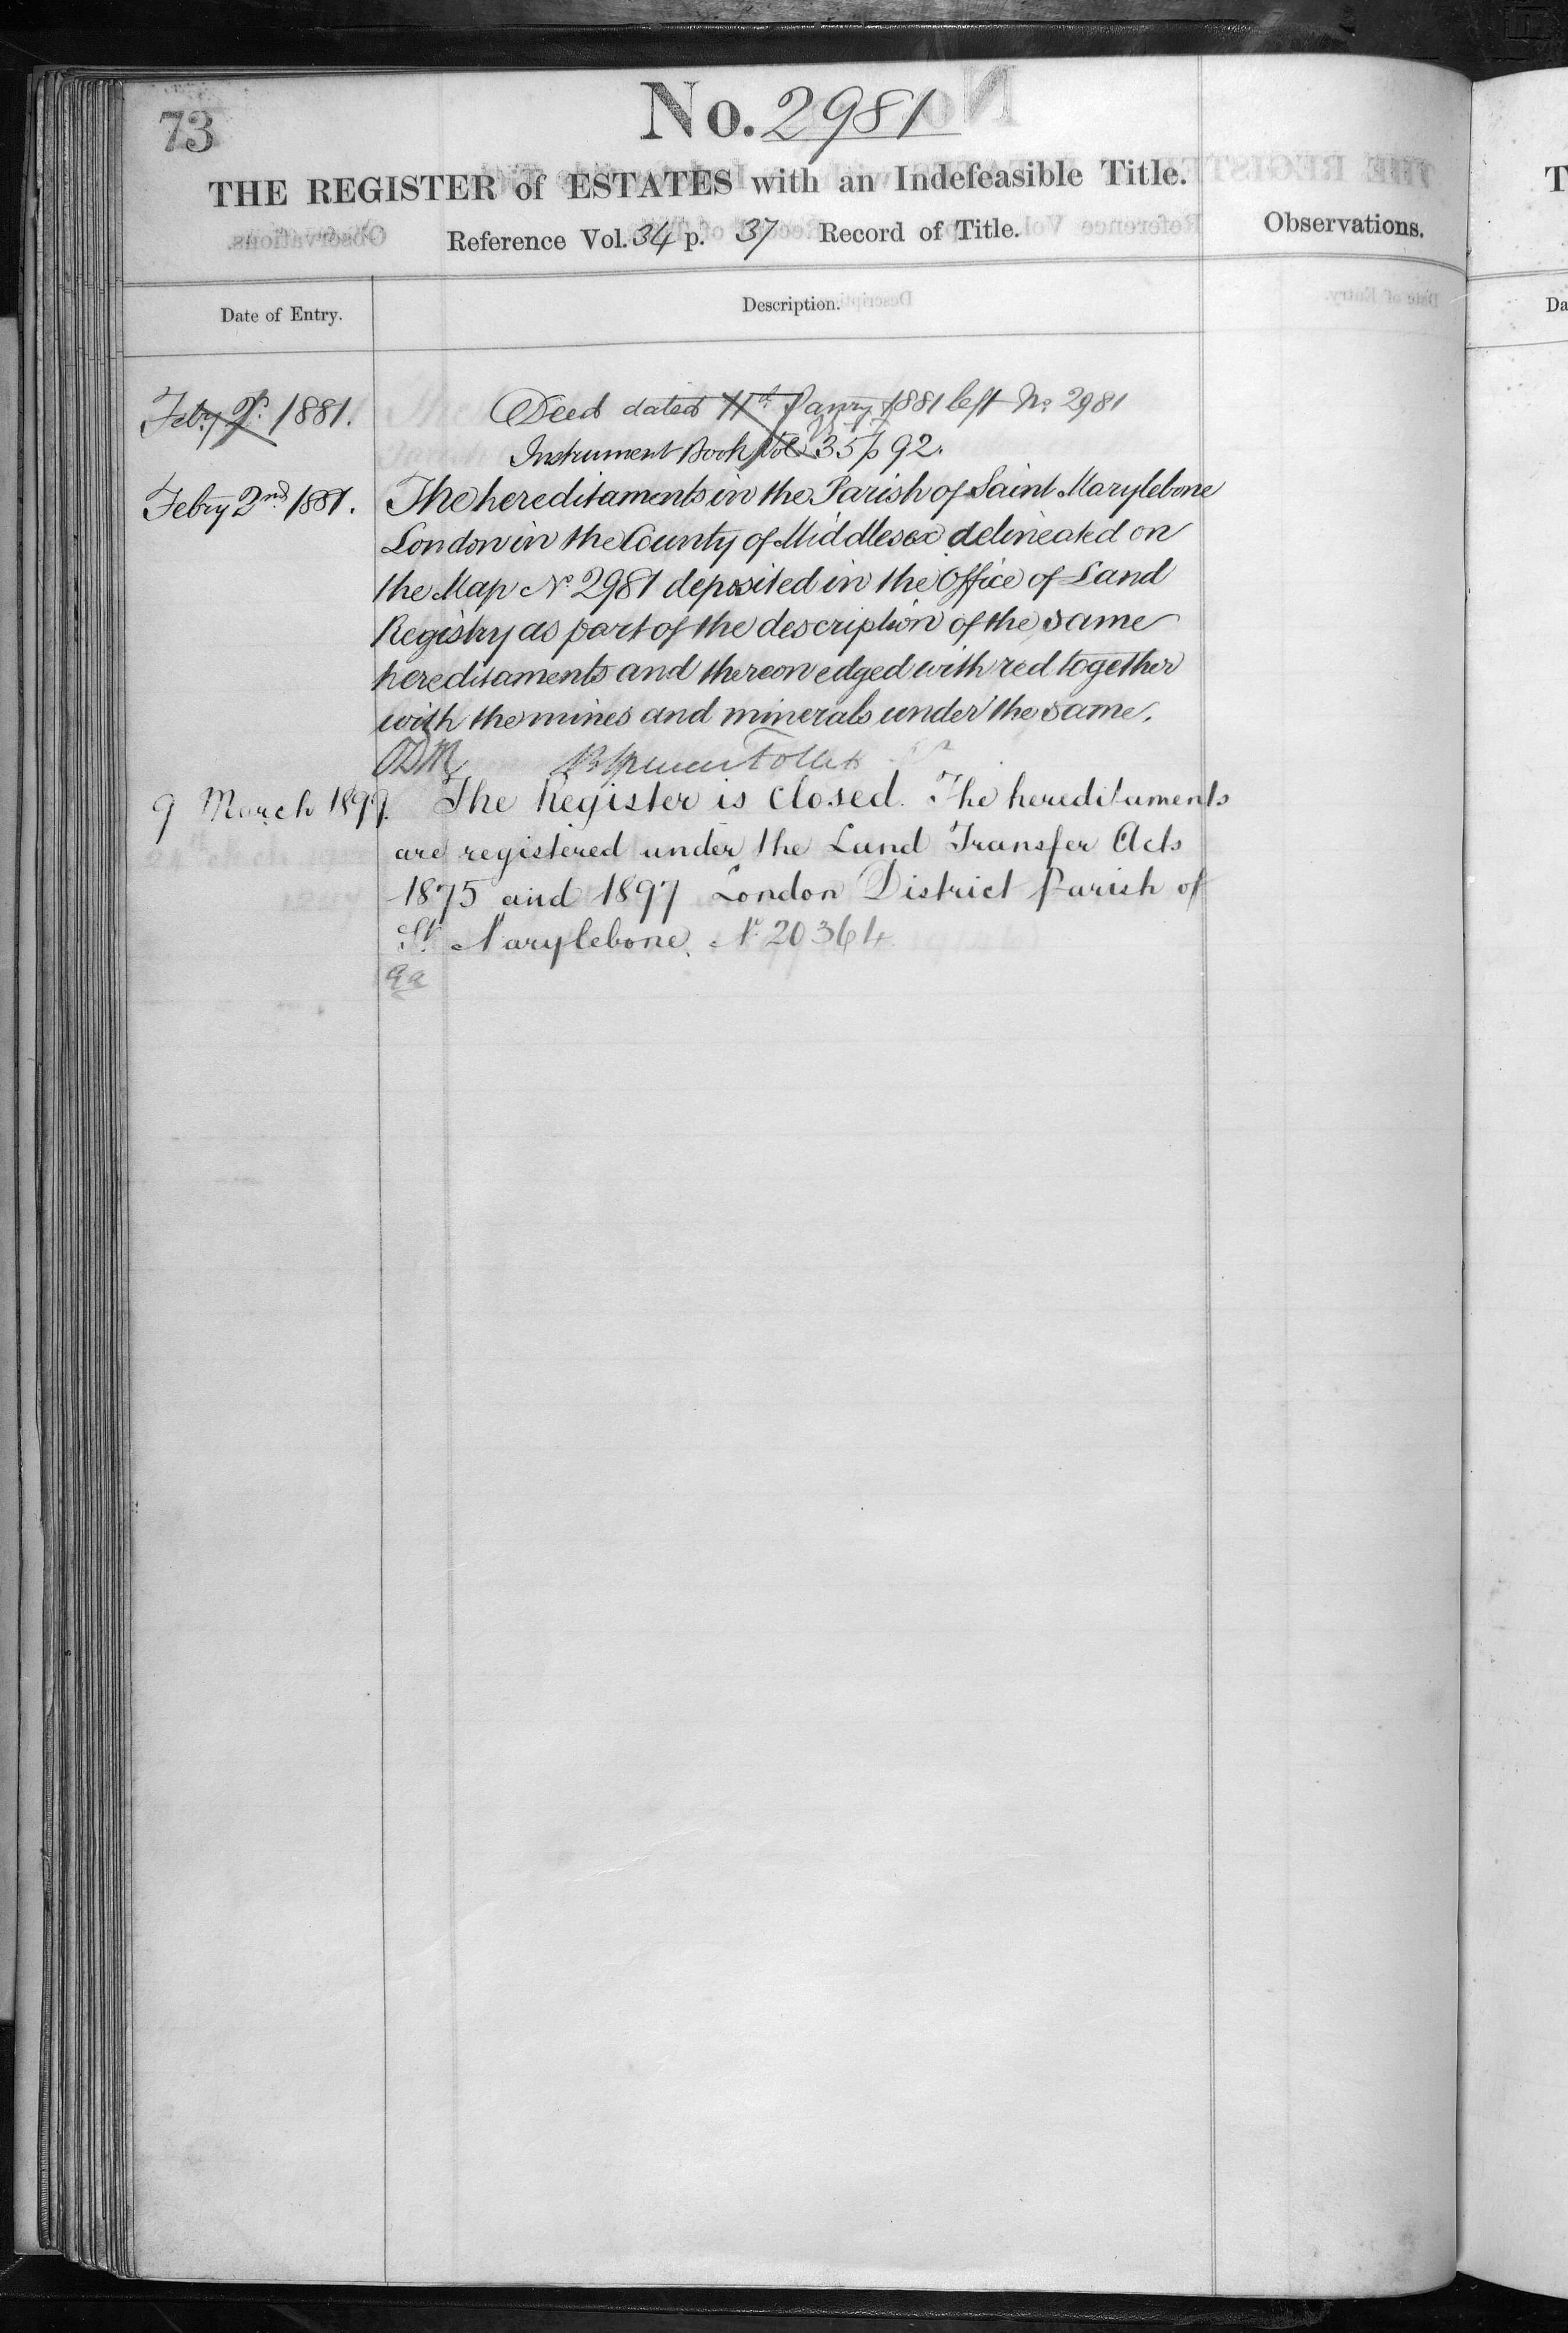 73
No. 2981
THE REGISTER of ESTATES with an Indefeasible Title.
Reference Vol. 34 p. 37 Record of Title.
Observations.
Date of Entry.
Description.
Feby 1881.
Deed dated 11th Janry 1881 left No 2981
Instrument Book Vol 35 p 92.
Febry 2nd 1881.
The hereditaments in the Parish of Saint Marylebone
London in the County of Middlesex delineated on
the Map No 2981 deposited in the Office of Land
Registry as part of the description of the same
hereditaments and thereon edged with red together
with the mines and minerals under the same.
9 March 1899.
The Register is Closed. The hereditaments
are registered under the Land Transfer Acts
1875 and 1897 London District Parish of
St Marylebone. No 20364